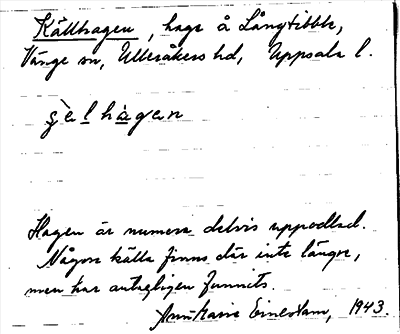 Källhagen, hage å Långtibble,
Vänge sn, Ulleråkers hd, Uppsala l.
Hagen är numera delvis uppodlad.
Någon källa finns där inte längre,
men har antagligen funnits.
Ann Marie 1943.